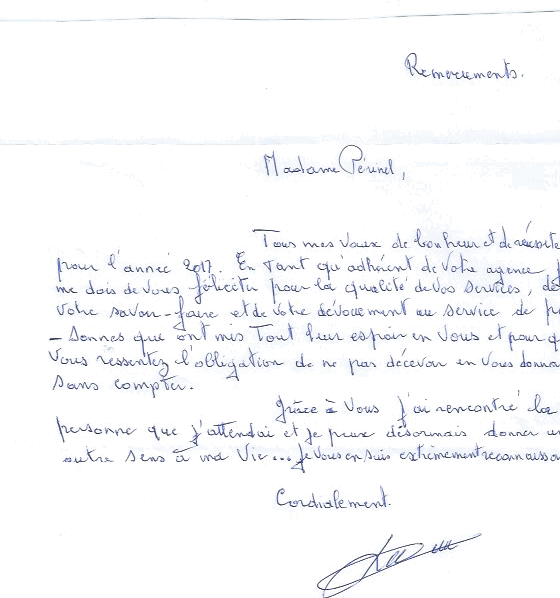 Remerciements.
Madame Périnel,
Tous mes vœux de bonheur et de réussite
pour l'année 2017. En tant qu'adhérent de votre agence, j
me dois de vous féliciter pour la qualité de vos services, de
votre savoir-faire et de votre dévouement au service de pe
-sonnes que ont mis tout leur espoir en vous et pour q
vous ressentez l'obligation de ne pas décevoir en vous donna
sans compter.
Grâce à vous j'ai rencontré la
personne que j'attendai et je peux désormais donner un
autre sens à ma vie... je vous en suis extrêmement reconnaissa
Cordialement.